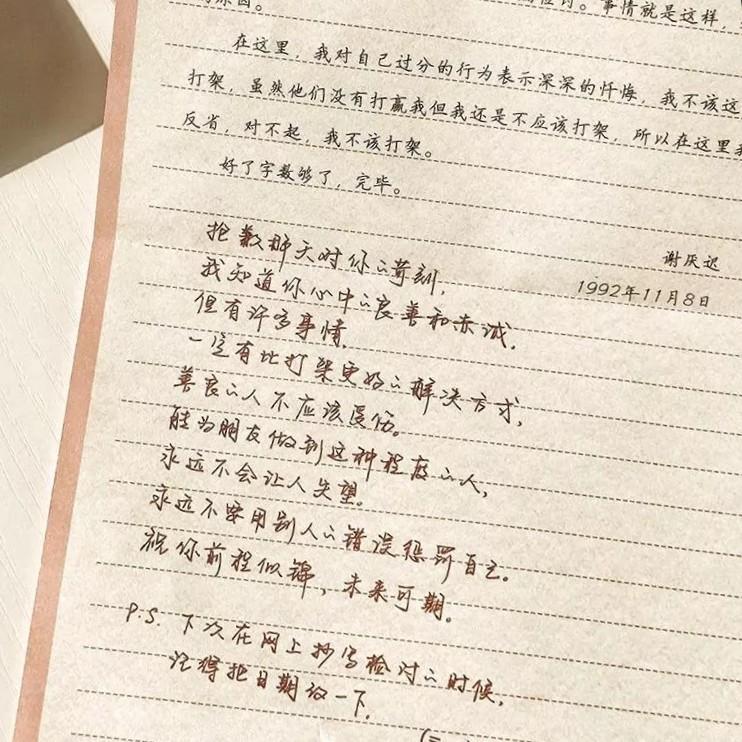 的原因。
检讨。事情就是这样，
在这里，我对自己过分的行为表示深深的忏悔，我不该这
打架，虽然他们没有打赢我但我还是不应该打架，所以在这里我
反省，对不起，我不该打架。
好了字数够了，完毕。
谢厌迟
1992年11月8日
抱歉那天对你的苛刻，
我知道你心中的良善和赤诚，
但有许多事情，
一定有比打架更好的解决方式，
善良的人不应该受伤。
能为朋友做到这种程度的人，
永远不会让人失望。
永远不要用别人的错误惩罚自己。
祝你前程似锦，未来可期。
P.S. 下次在网上抄写检讨的时候，
记得把日期改一下。